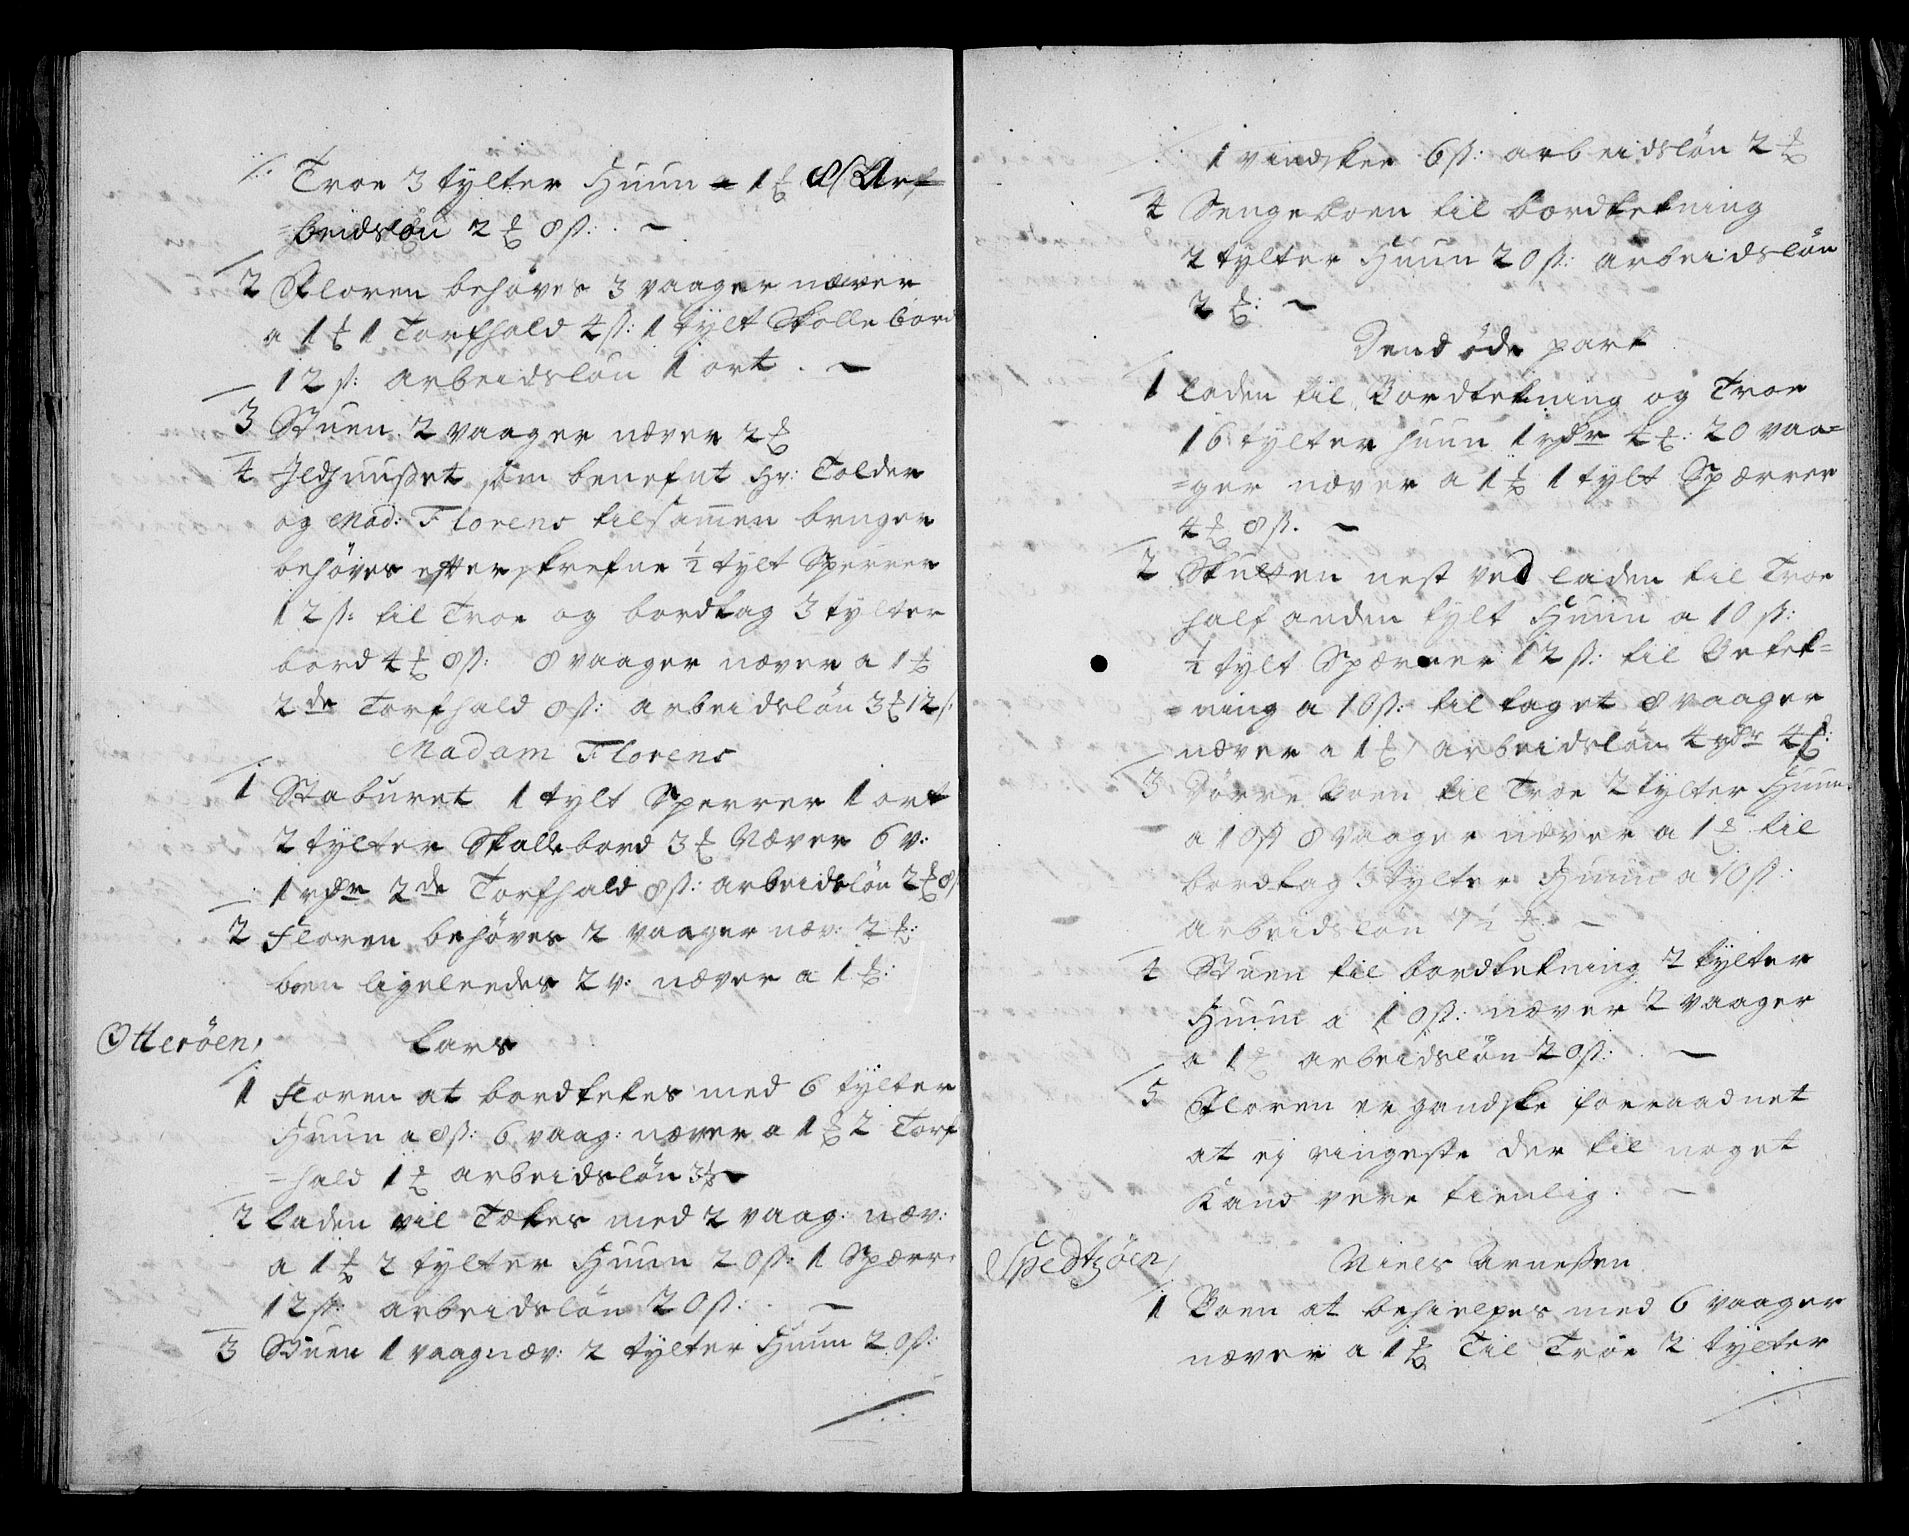 Troe 3 tylter Huun a 1 ℔ 8 ß Arf
=beidsløn 2 ℔ 8 ß: . ~
2 Floren behøves 3 vaager næver
a 1 ℔ 1 Torfhald 4 ß: 1 tylt Skolle bord
12 ß: arbeidsløn 1 ort . ~
3 Stuen 2 vaager næver 2 ℔
4 Ildhuußet som benefnt Hr: Tolder
og Mad: Florens tilsam̅en bruger
behøves efterskrefne ½ tylt Sperrer
12 ß: til Troe og bordtag 3 tylter
bord 4 ℔ 8 ß: 8 vaager næver a 1 ℔
2de Torfhald 8 ß: arbeidsløn 3 ℔ 12 ß
Madam Florens
1 Staburet 1 tylt Sperrer 1 ort
2 tylter Skallebord 3 ℔ Næver 6 v:
1 rdr 2de Torfhald 8 ß: arbeidsløn 2 ℔ 8 ß
2 Floren behøves 2 vaager næv: 2 ℔:
boen ligeleedes 2 v: næver a 1 ℔:
Otterøen, Lars
1 Floren at bordtekes med 6 tylter
Huun a 8 ß: 6 vaag: næver a 1 ℔ 2 Torf
=hald 1 ℔ arbeidsløn 3 ℔ ~
2 Laden vil Tækes med 2 vaag: næv:
a 1 ℔ 2 tylter Huun 20 ß: 1 Spærr:
12 ß: arbeidsløn 20 ß: . ~
3 Stuen 1 vaag næv: 2 tylter Huun 20 ß:
1 vindskee 6 ß: arbeidsløn 2 ℔
4 Sengeboen til bordtekning
2 tylter Huun 20 ß: arbeidsløn
2 ℔: ~
Dend øde part
1 Laden til Bordtekning og Troe
16 tylter huun 1 rdr 4 ℔: 20 vaa=
=ger næver a 1 ℔ 1 tylt Spærrer
4 ℔ 8 ß. ~
2 nest ved laden til Troe
half anden tylt Huun a 10 ß:
½ tylt Spærrer 12 ß: til Betek=
=ning a 10 ß: til taget 8 vaager
næver a 1 ℔ arbeidsløn 4 rdr 4 ß:
3 Dørre Boen til Troe 2 tylter Huun
a 10 ß 8 vaager næver a 1 ℔ til
bordtag 3 tylter Huun a 10 ß:
Arbeidsløn ℔: ~
4 Stuen til bordtekning 2 tylter
Huun a 10 ß: næver 2 vaager
a 1 ℔ arbeidsløn 20 ß: . ~
5 Floren er gandske forraadnet
at ej ringeste der til noget
Kand vere tienlig. ~
Niels Arneßen
1 Boen at behielpes med 6 vaager
næver a 1 ℔ Til Troe 2 tylter